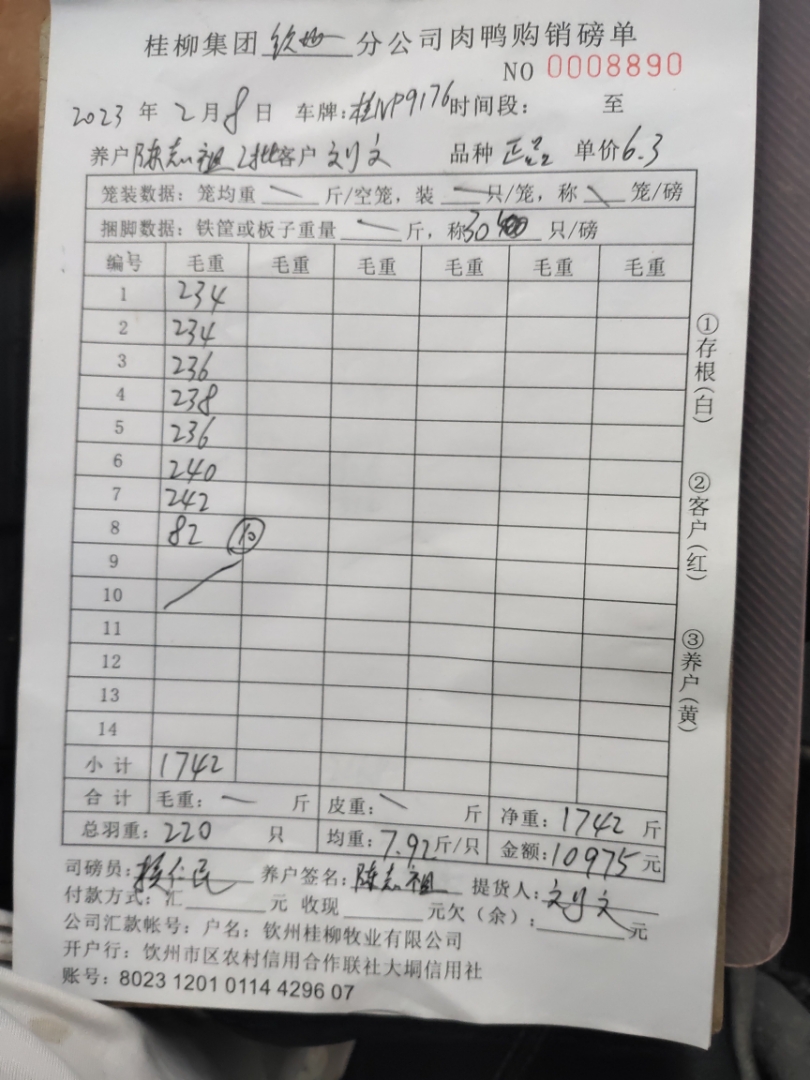 桂柳集团 钦州 分公司肉鸭购销磅单
NO 0008890
2023 年 2 月 8 日 车牌:桂NP9176 时间段: 至
养户 陈志祖 2批 客户 刘文 品种 正品 单价 6.3
笼装数据:笼均重 斤/空笼,装 只/笼,称 笼/磅
捆脚数据:铁筐或板子重量 斤,称 30 只/磅
编号 毛重 毛重 毛重 毛重 毛重 毛重
1 234
2 234
3 236
4 238
5 236
6 240
7 242
8 82 10
9
10
11
12
13
14
小计 1742
合计 毛重: 斤 皮重: 斤 净重:1742 斤
总羽重:220 只 均重:7.92 斤/只 金额:10975 元
司磅员: 养户签名:陈志祖 提货人:刘文
付款方式:汇 元 收现 元欠(余): 元
公司汇款帐号:户名:钦州桂柳牧业有限公司
开户行:钦州市区农村信用合作联社大垌信用社
账号:8023 1201 0114 4296 07
①存根(白)
②客户(红)
③养户(黄)